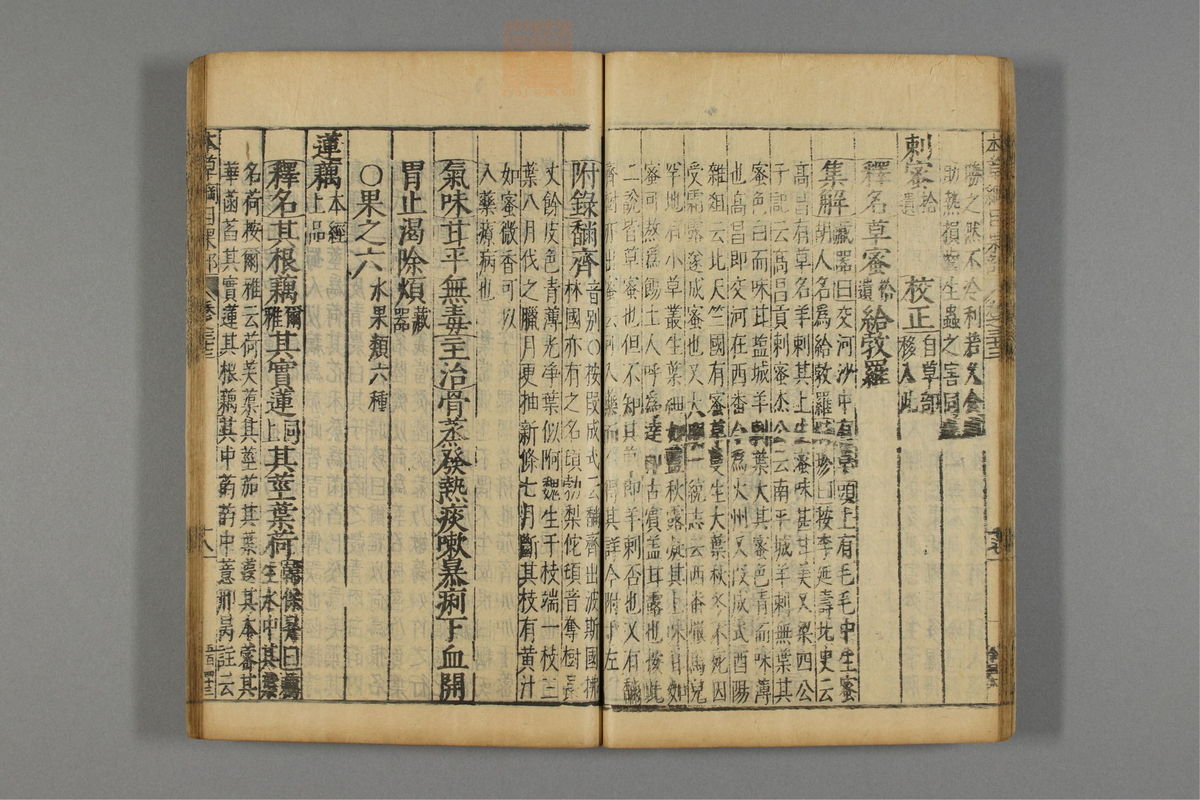 本草綱目果部 卷之三十三
勝之然不冷利者久食
助熱損齒生蟲之害同
刺蜜拾遺 校正自草部移入此
釋名草蜜拾遺給敦羅
集解藏器曰交河沙中有草頭上有毛毛中生蜜
胡人名爲給敦羅時珍曰按李延壽北史云
高昌有草名羊刺其上生蜜味甚甘美又梁四公
子記云高昌貢刺蜜杰公云南平城羊刺無葉其
蜜色白而味甘鹽城羊刺葉大其蜜色青而味薄
也高昌即交河在西番今爲火州又段成式酉陽
雜俎云北天竺國有蜜草蔓生大葉秋冬不死因
受霜露遂成蜜也又大明一統志云西番撒馬兒
罕地有小草叢生葉細如藍秋露凝其上味甘如
蜜可熬爲餳土人呼爲達即古賓蓋甘露也按此
二說皆草蜜也但不知其草即羊刺否也又有䤄
齊樹亦出蜜云可入藥而不得其詳今附于左
附錄䤄齊音別○按段成式云䤄齊出波斯國拂
林國亦有之名頇勃梨佗頇音奪樹長
丈餘皮色青薄光淨葉似阿魏生于枝端一枝三
葉八月伐之臘月更抽新條七月斷其枝有黄汁
如蜜微香可以
入藥療病也
氣味甘平無毒主治骨蒸發熱痰嗽暴痢下血開
胃止渴除煩藏器
○果之六水果類六種
蓮藕本經上品
釋名其根藕爾雅其實蓮上同其莖葉荷韓保昇曰藕生水中其葉
名荷按爾雅云荷芙蕖其莖茄其葉蕸其本蔤其
華菡萏其實蓮其根藕其中菂菂中薏邢昺註云
本草綱目果部 卷三十三 八